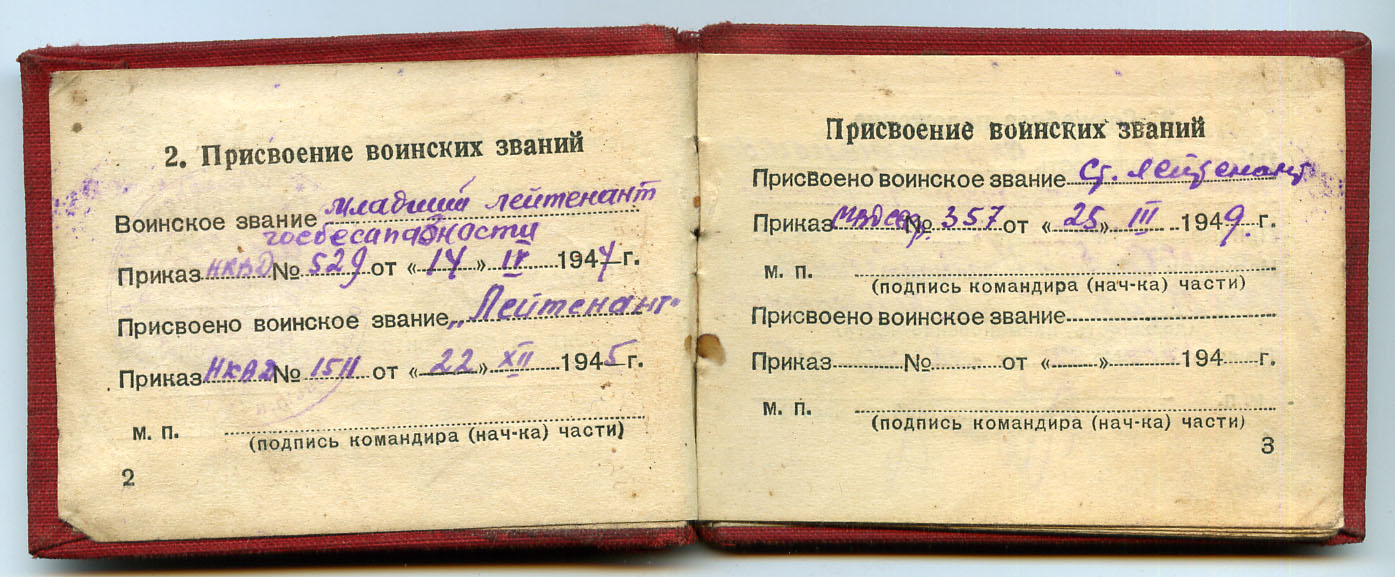 2. Присвоение воинских званий
Воинское звание младший лейтенант
госбесапасности
Приказ НКВД № 529 от «14» IV 1944 г.
Присвоено воинское звание „Лейтенант"
Приказ НКВД № 1511 от «22» XII 1945 г.
М. П.
(подпись командира (нач-ка) части)
2
Присвоение воинских званий
Присвоено воинское звание Ст. лейтенант
Приказ МВД № 357 от «25» III 1949. г.
М. П.
(подпись командира (нач-ка) части)
Присвоено воинское звание
Приказ № от « » 194 г.
М. П.
(подпись командира (нач-ка) части)
3